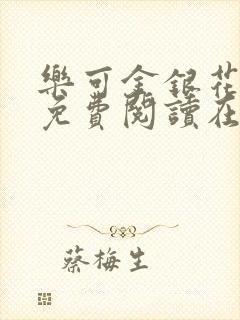 樂可金銀花
免費閱讀在
蔡梅生